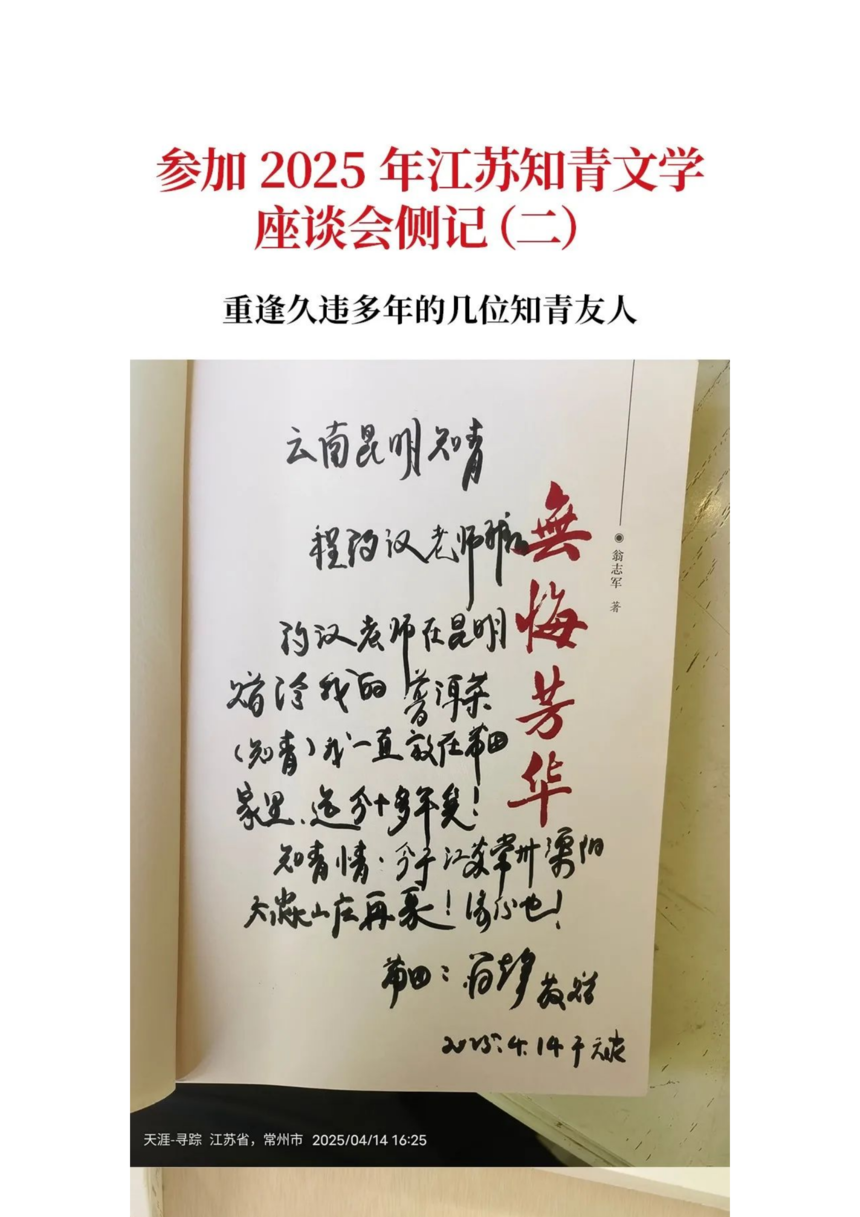 参加 2025 年江苏知青文学
座谈会侧记(二)
重逢久违多年的几位知青友人
云南昆明知青
程 汉老师
汉老师在昆明
赠给我的普洱茶
(知青)我一直放在莆田
家里、迄今十多年矣!
知青情·今于江苏常州溧阳
天 山庄再聚!缘份也!
莆田: 敬赠
2025.4.14于天
無悔芳华
翁志军 著
天涯-寻踪 江苏省，常州市 2025/04/14 16:25